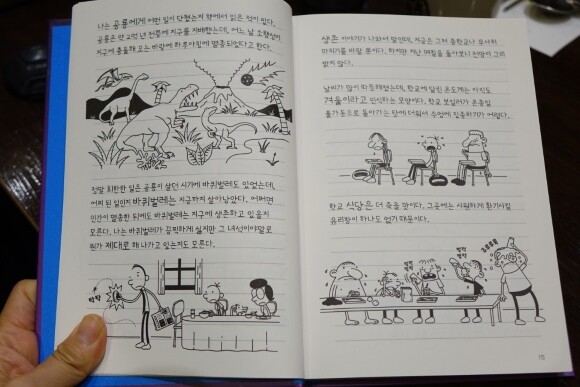 나는 공룡에게 어떤 일이 닥쳤는지 책에서 읽은 적이 있다.
공룡은 약 2억 년 전쯤에 지구를 지배했는데, 어느 날 소행성이
지구에 충돌해 오는 바람에 하룻밤에 멸종되었다고 한다.
정말 희한한 일은 공룡이 살던 시기에 바퀴벌레도 있었는데,
어찌 된 일인지 바퀴벌레는 지금까지 살아남았다. 어쩌면
인간이 멸종한 뒤에도 바퀴벌레는 지구에 생존하고 있을지
모른다. 나는 바퀴벌레가 끔찍하게 싫지만 그 녀석이야말로
뭔가 제대로 해 나가고 있는지도 모른다.
퍽퍽
생존 이야기가 나와서 말인데, 지금은 그저 중학교나 무사히
마치기를 바랄 뿐이다. 하지만 지난 며칠을 돌아보니 전망이 그리
밝지 않다.
날씨가 많이 따뜻해졌는데, 학교에 달린 온도계는 아직도
겨울이라고 인식하는 모양이다. 학교 보일러가 온종일
풀가동으로 돌아가는 탓에 더워서 수업에 집중하기가 어렵다.
학교 식당은 더 죽을 맛이다. 그곳에는 시원하게 환기시킬
유리창이 하나도 없기 때문이다.